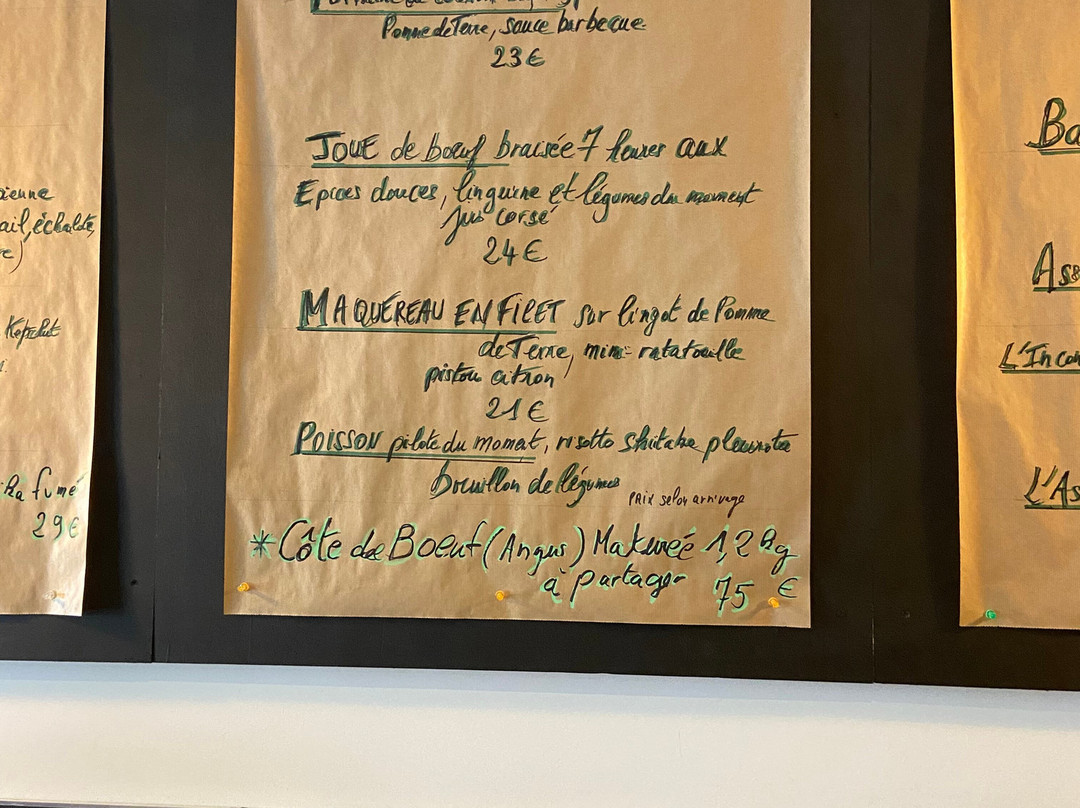 ienne
ail, échalote,
Képhet
ka fumé
29€
Pomme de Terre, sauce barbecue
23€
JOUE de boeuf braisée 7 heures aux
Epices douces, linguine et légumes du moment
jus corsé
24€
MAQUEREAU EN FILET sur lingot de Pomme
de Terre, mini-ratatouille
pistou citron
21€
POISSON pilote du moment, risotto shitake pleurote
bouillon de légumes
PRIX selon arrivage
*Côte de Boeuf (Angus) Maturée 1,2 kg
à partager 75 €
Ba
Ass
L'Incon
L'As